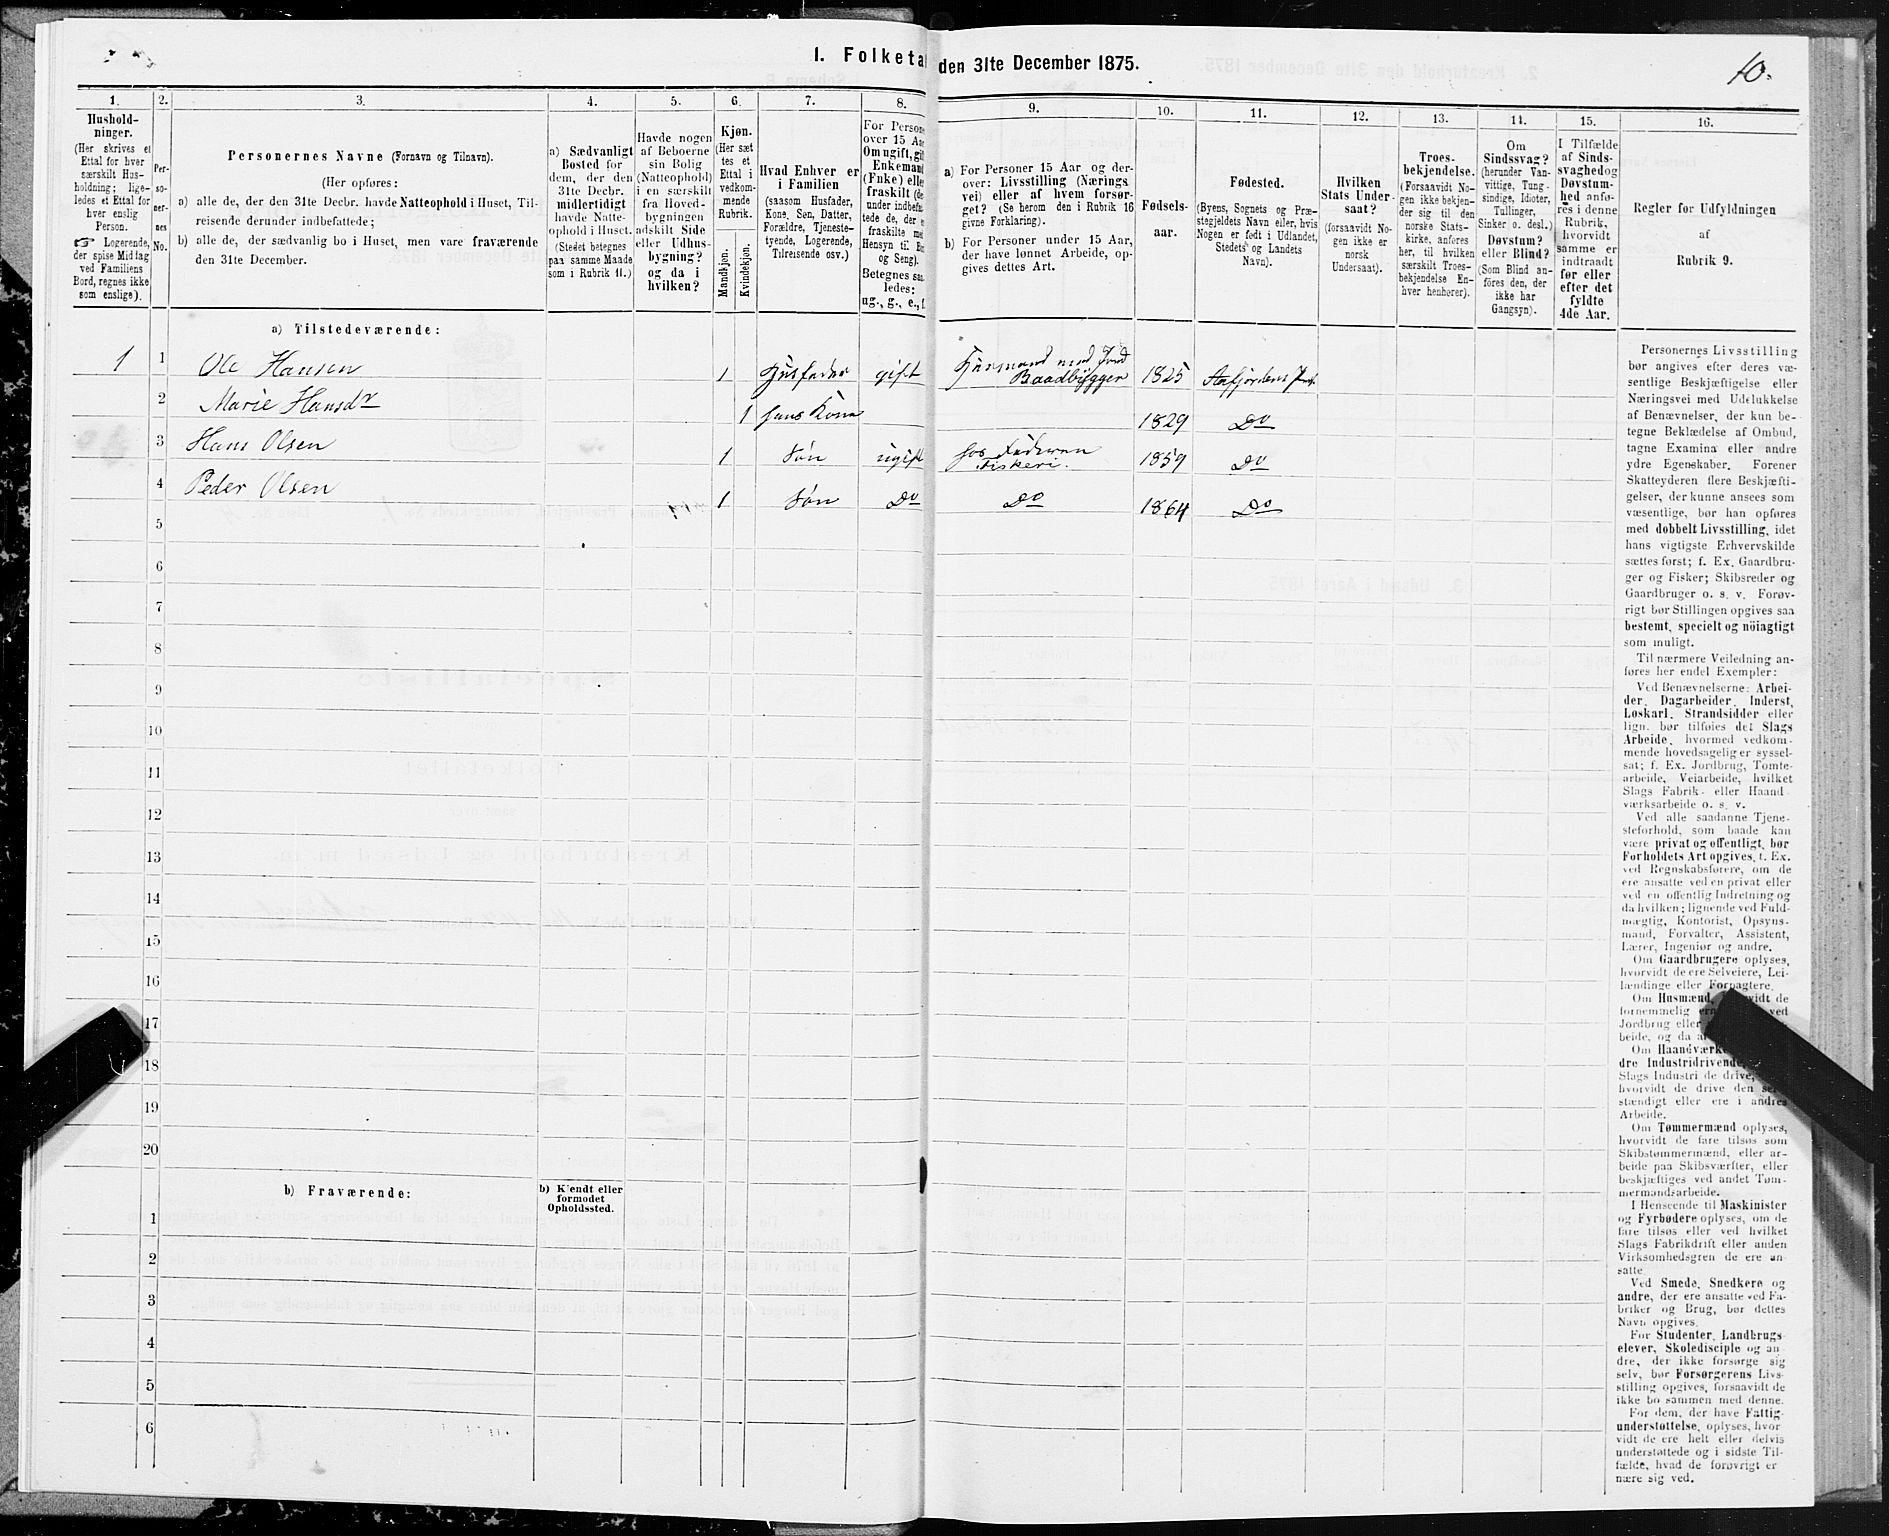 1. Folketa den 31te December 1875.
10.
1.
Hushold-
ninger.
(Her skrives et
Ettal for hver
særskilt Hus-
holdning; lige-
ledes et Ettal for
hver enslig
Person.
☞ Logerende,
der spise Middag
ved Familiens
Bord, regnes ikke
som enslige).
2.
Per-
so-
ner-
nes
No.
3.
Personernes Navne (Fornavn og Tilnavn).
(Her opføres:
a) alle de, der den 31te Decbr. havde Natteophold i Huset, Til-
reisende derunder indbefattede;
b) alle de, der sædvanlig bo i Huset, men vare fraværende
den 31te December.
4.
a) Sædvanligt
Bosted for
dem, der den
31te Decbr.
midlertidigt
havde Natte-
ophold i Huset.
(Stedet betegnes
paa samme Maade
som i Rubrik 11.)
5.
Havde nogen
af Beboerne
sin Bolig
(Natteophold)
i en særskilt
fra Hoved-
bygningen
adskilt Side
eller Udhus-
bygning?
og da i
hvilken?
6.
Kjøn.
(Her sæt
tes et
Ettal i
vedkom-
mende
Rubrik.
Mandkjøn.
Kvindekjøn.
7.
Hvad Enhver er
i Familien
(saasom Husfader,
Kone, Søn, Datter,
Forældre, Tjeneste-
tyende, Logerende,
Tilreisende osv.)
8.
For Persone
over 15 Aar
Om ugift, gif
Enkemand
(Enke) eller
fraskilt (de
under indbefat
tede de, der e
fraskilte med
Hensyn til Bo
og Seng).
Betegnes saa
ledes:
ug., g., e., f
9.
a) For Personer 15 Aar og der-
over: Livsstilling (Nærings
vei) eller af hvem forsør-
get? (Se herom den i Rubrik 16
givne Forklaring).
b) For Personer under 15 Aar,
der have lønnet Arbeide, op-
gives dettes Art.
10.
Fødsels-
aar.
11.
Fødested.
(Byens, Sognets og Præ-
stegjeldets Navn eller, hvis
Nogen er født i Udlandet,
Stedets og Landets
Navn).
12.
Hvilken
Stats Under-
saat?
(forsaavidt No-
gen ikke er
norsk
Undersaat).
13.
Troes-
bekjendelse.
(Forsaavidt No-
gen ikke bekjen-
der sig til den
norske Stats-
kirke, anføres
her, til hvilken
særskilt Troes-
bekjendelse En-
hver henhører).
14.
Om
Sindssvag?
(herunder Van-
vittige, Tung-
sindige, Idioter,
Tullinger,
Sinker o. desl.)
Døvstum?
eller Blind?
(Som Blind an-
føres den, der
ikke har
Gangsyn).
15.
I Tilfælde
af Sinds-
svaghed og
Døvstum-
hed anfø-
res i denne
Rubrik,
hvorvidt
samme er
indtraadt
før eller
efter det
fyldte
4de Aar.
16.
Regler for Udfyldningen
af
Rubrik 9.
a) Tilstedeværende:
1 1 Ole Hansen 1 Husfader gift Husmand med Jord Baadbygger 1825 Aafjordens Præst.
2 Marie Hansdr 1 hans Kone 1829 Do
3 Hans Olsen 1 Søn ugift hos Faderen Fiskeri. 1859 Do
4 Peder Olsen 1 Søn Do Do 1864 Do
5
6
7
8
9
10
11
12
13
14
15
16
17
18
19
20
b) Fraværende:
b) Kjendt eller
formodet
Opholdssted.
1
2
3
4
5
6
Personernes Livsstilling
bør angives efter deres væ-
sentlige Beskjæftigelse eller
Næringsvei med Udelukkelse
af Benævnelser, der kun be-
tegne Beklædelse af Ombud,
tagne Examina eller andre
ydre Egenskaber. Forener
Skatteyderen flere Beskjæfti-
gelser, der kunne ansees som
væsentlige, bør han opføres
med dobbelt Livsstilling, idet
hans vigtigste Erhvervskilde
sættes først; f. Ex. Gaardbru-
ger og Fisker; Skibsreder og
Gaardbruger o. s. v. Forøv-
rigt bør Stillingen opgives saa
bestemt, specielt og nöiagtigt
som muligt.
Til nærmere Veiledning an-
føres her endel Exempler:
Ved Benævnelserne: Arbei-
der, Dagarbeider, Inderst,
Løskarl, Strandsidder eller
lign. bør tilføies det Slags
Arbeide, hvormed vedkom-
mende hovedsagelig er syssel-
sat; f. Ex. Jordbrug, Tomte-
arbeide, Veiarbeide, hvilket
Slags Fabrik- eller Haand-
værksarbeide o. s. v.
Ved alle saadanne Tjene-
steforhold, som baade kan
være privat og offentligt, bør
Forholdets Art opgives, f. Ex.
ved Regnskabsførere, om de
ere ansatte ved en privat eller
ved en offentlig Indretning og
da hvilken; lignende ved Fuld-
mægtig, Kontorist, Opsyns-
mand, Forvalter, Assistent,
Lærer, Ingeniør og andre.
Om Gaardbrugere oplyses,
hvorvidt de ere Selveiere, Lei-
lændinge eller Forpagtere.
Om Husmænd, vidt de
fornemmelig ved
Jordbrug eller
beide, og da
Om Haandværke
dre Industridrivende,
Slags Industri de drive,
hvorvidt de drive den
stændigt eller ere i andres
Arbeide.
Om Tømmermænd oplyses,
hvorvidt de fare tilsøs som
Skibstømmermænd, eller ar-
beide paa Skibsværfter, eller
beskjæftiges ved andet Tøm-
mermandsarbeide.
I Henseende til Maskinister
og Fyrbødere oplyses, om de
fare tilsøs eller ved hvilket
Slags Fabrikdrift eller anden
Virksomhedsgren de ere an-
satte.
Ved Smede, Snedkere og
andre, der ere ansatte ved Fa-
briker og Brug, bør dettes
Navn opgives.
For Studenter, Landbrugs-
elever, Skoledisciple og an-
dre, der ikke forsørge sig
selv, bør Forsørgerens Livs-
stilling opgives, forsaavidt de
ikke bo sammen med denne.
For dem, der have Fattig-
understøttelse, oplyses, hvor-
vidt de ere helt eller delvis
understøttede og i sidste Til-
fælde, hvad de forøvrigt er
nære sig ved.